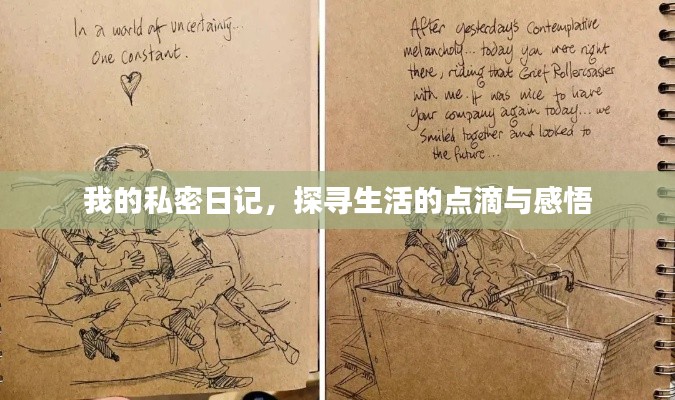 In a world of uncertainty...
One constant.
After yesterdays contemplative
melancholy... today you were right
there, riding that Grief Rollercoaster
with me. It was nice to have
your company again today... we
smiled together and looked to
the future...
我的私密日记，探寻生活的点滴与感悟